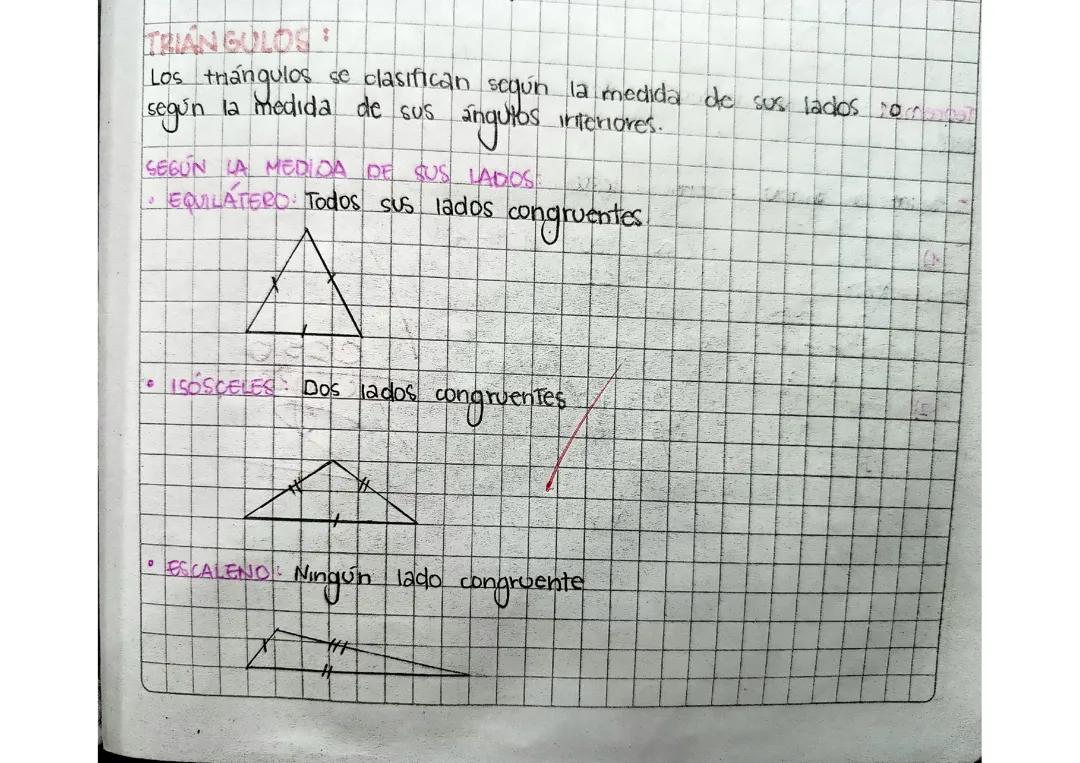 TRIÁNGULOS:
Los triángulos se clasifican según la medida de sus lados o
según la medida de sus ángulos interiores.
SEGÚN LA MEDIDA DE SUS LADOS:
• EQUILÁTERO: Todos sus lados congruentes
• ISÓSCELES: Dos lados congruentes
• ESCALENO: Ningún lado congruente